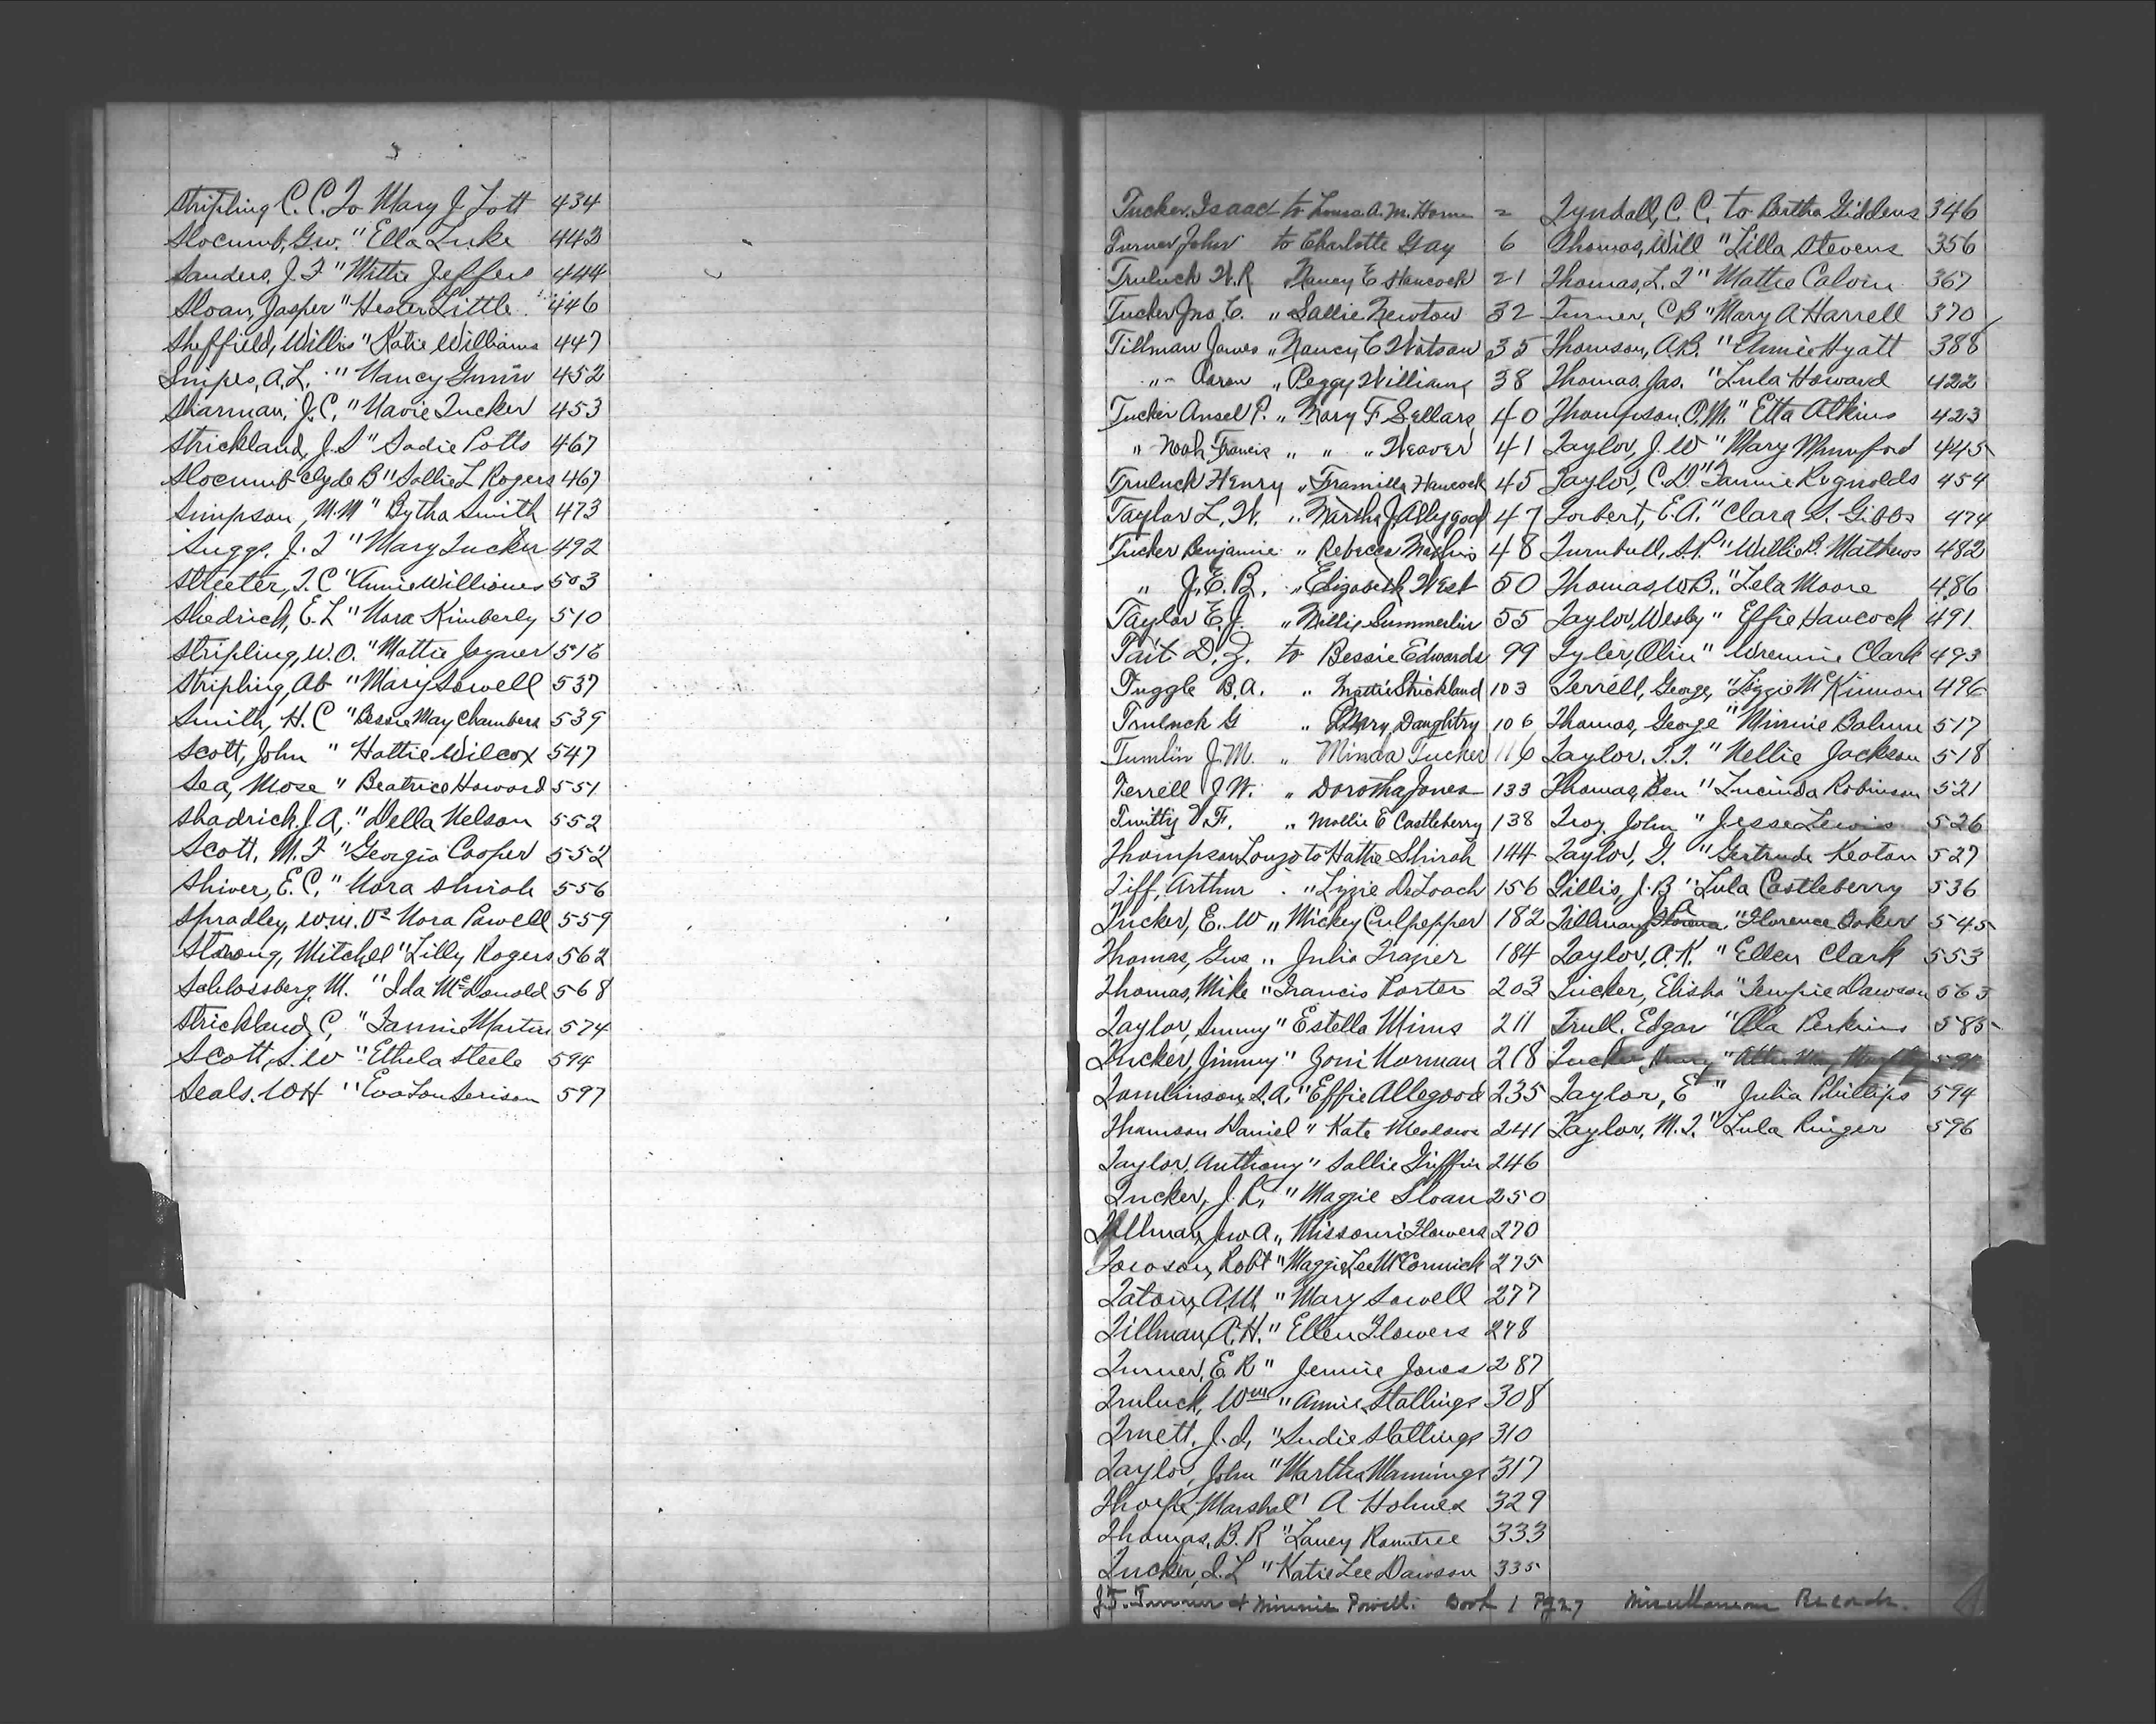 Stripling C. C. To Mary J Lott 434
Slocumb, G.W. " Ella Luke 443
Sanders, J. F " Mittie Jeffers 444
Sloan, Jasper " Hester Little 446
Sheffield, Willis " Katie Williams 447
Snipes, A. L. " Nancy 452
Sharman, J. C. " Mavie Tucker 453
Strickland, J. S " Sadie Potts 467
Slocumb Clyde B " Sallie L Rogers 467
Simpson, M. M " Bytha Smith 473
Suggs, J. T " Mary Tucker 492
Streeter, T. C " Annie Williams 503
Shedrick, E. L " Nora Kimberly 510
Stripling, W. O. " Mattie Joyner 518
Stripling, Ab " Mary Sowell 537
Smith, H. C " Bessie May Chambers 539
Scott, John " Hattie Wilcox 547
Sea, Mose " Beatrice Howard 551
Shadrick, J. A, " Della Nelson 552
Scott, M. F " Georgia Cooper 552
Shiver, E. C. " Nora Shirah 556
Spradley, Wm. Vs Nora Powell 559
Strong, Mitchell " Lilly Rogers 562
Schlossberg, M. " Ida McDonald 568
Strickland, C, " Fannie Martin 574
Scott, S. W " Ethela Steele 594
Seals. W H " Eva Lou 597
Tucker, Isaac to Louisa A. M. Horne 2
Turner John to Charlotte Gay 6
Truluck W. R Nancy E Hancock 21
Tucker Jno. C. " Sallie Newton 32
Tillman James " Nancy C Watson 35
" Aaron " Peggy Williams 38
Tucker Ansel P. " Mary F Sellars 40
" Noah Francis " " " Weaver 41
Truluck Henry " Framilla Hancock 45
Taylor L. W. " Martha J. Allygood 47
Tucker Benjamin " Rebecca Mathis 48
" J. E. B. " Elizabeth West 50
Taylor E. J. " Millie Summerlin 55
Tait D. Z. to Bessie Edwards 99
Tuggle B. A. " Mattie Strickland 103
Truluck G " Mary Daughtry 106
Tumlin J. M. " Minda Tucker 116
Terrell J. W. " Dorotha Jones 133
Twitty V F. " Mollie E Castleberry 138
Thompson Lonzo to Hattie Shirah 144
Tiff, Arthur " Lizzie DeLoach 156
Tucker, E. W " Mickey Culpepper 182
Thomas, Gus " Julia Frazier 184
Thomas, Mike " Francis Porter 203
Taylor, Jimmy " Estella Mims 211
Tucker, Jimmy " Zoni Norman 218
Tomlinson, S. A. " Effie Allegood 235
Thomson Daniel " Kate 241
Taylor, Anthony " Sallie Griffin 246
Tucker, J. R, " Maggie Sloan 250
Tillman, Jno A " Missouri Flowers 270
Robt " Maggie Lee McCormick 275
Tatom, A.W. " Mary Sowell 277
Tillman, A. H. " Ellen Flowers 278
Turner, E R " Jennie Jones 287
Truluck, Wm " Annie Stallings 308
Truett, J. d, " Sudie Stallings 310
Taylor, John " Martha Mannings 317
Thorpe, Marshal " A Holmes 329
Thomas, B. R " Laney Rountree 333
Tucker, I. L " Katie Lee Dawson 335
Tyndall, C. C. to Bertha Giddens 346
Thomas, Will " Lilla Stevens 356
Thomas, L. T " Mattie Calvin 367
Turner, C B " Mary A Harrell 370
Thomson, A.B. " Annie Hyatt 388
Thomas, Jas. " Lula Howard 422
Thompson, O.M. " Etta Atkins 423
Taylor, J. W " Mary Mumford 445
Taylor, C. D. " Fannie Reynolds 454
Torbert, E. A. " Clara S. Gibbs 474
Turnbull, S. P. " Willie B. Mathews 482
Thomas, W B. " Lela Moore 486
Taylor, Wesley " Effie Hancock 491
Tyler, Olin " Wrennie Clark 493
Terrell, George, " Lizzie McKinnon 496
Thomas, George " Minnie 517
Taylor, T. T. " Nellie Jackson 518
Thomas, Ben " Lucinda Robinson 521
Troy, John " Jesse Lewis 526
Taylor, G. " Gertrude Keaton 527
Tillis, J. B " Lula Castleberry 536
Tillman, " Florence Baker 545
Taylor, A. K. " Ellen Clark 553
Tucker, Elisha " Tempie Dawson 563
Trull, Edgar " Ola Perkins 585
Tucker, Henry " 591
Taylor, E " Julia Phillips 594
Taylor, M. T. " Lula Ringer 596
J. T. Turner & Minnie Powell. Book 1 Pg 27 Miscellaneous Records.